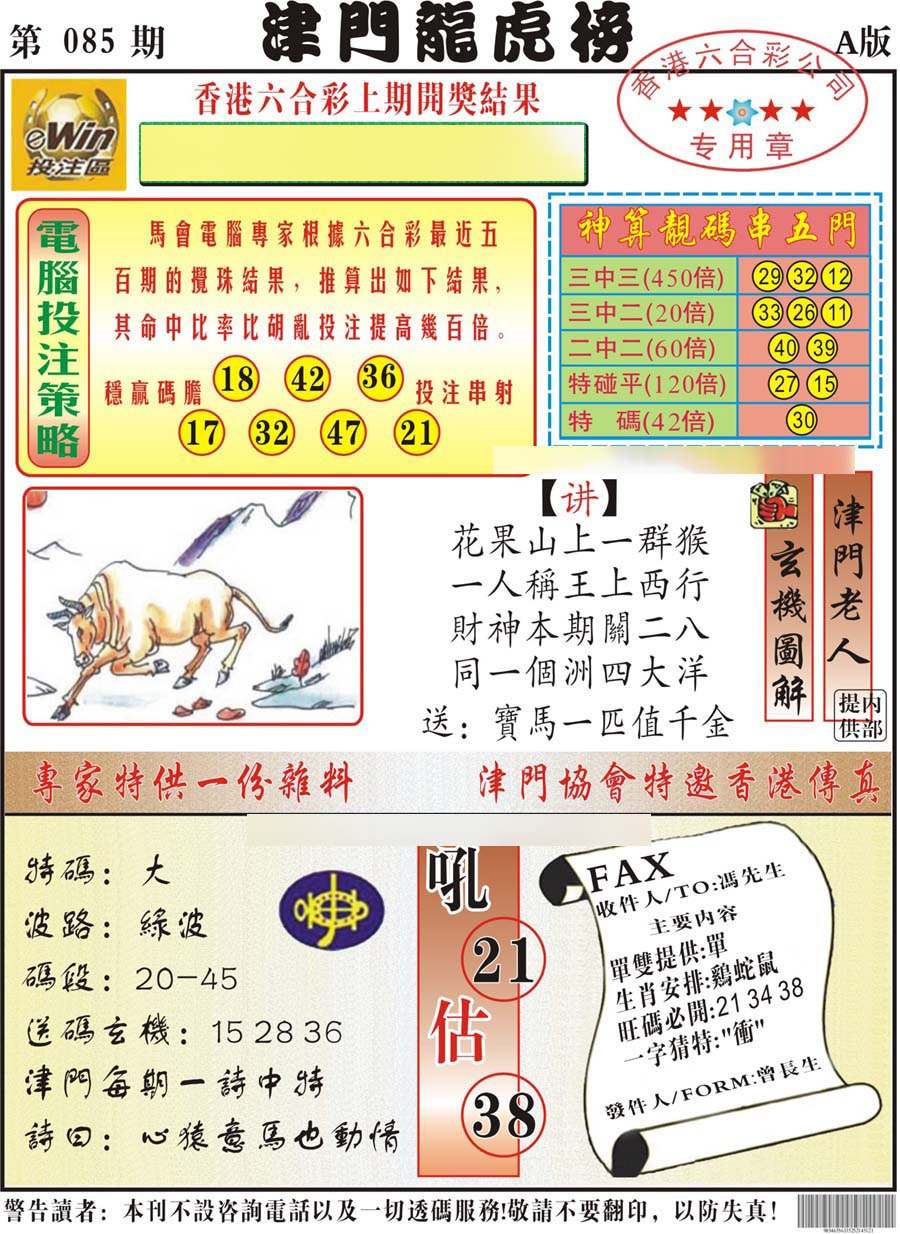 第 085 期
津門龍虎榜
A版
eWin
投注區
香港六合彩上期開獎結果
香港六合彩公司
专用章
電腦投注策略
馬會電腦專家根據六合彩最近五
百期的攪珠結果，推算出如下結果，
其命中比率比胡亂投注提高幾百倍。
穩贏碼膽 18 42 36 投注串射
17 32 47 21
神算靚碼串五門
三中三(450倍) 29 32 12
三中二(20倍) 33 26 11
二中二(60倍) 40 39
特碰平(120倍) 27 15
特 碼(42倍) 30
【讲】
花果山上一群猴
一人稱王上西行
財神本期關二八
同一個洲四大洋
送：寶馬一匹值千金
玄機圖解
津門老人
內部提供
專家特供一份雜料
津門協會特邀香港傳真
特碼：大
波路：綠波
碼段：20-45
送碼玄機：15 28 36
津門每期一詩中特
詩曰：心猿意馬也動情
吼
21
估
38
FAX
收件人/TO:馮先生
主要內容
單雙提供:單
生肖安排:鷄蛇鼠
旺碼必開:21 34 38
一字猜特:"衝"
發件人/FORM:曾長生
警告讀者：本刊不設咨詢電話以及一切透碼服務!敬請不要翻印，以防失真！